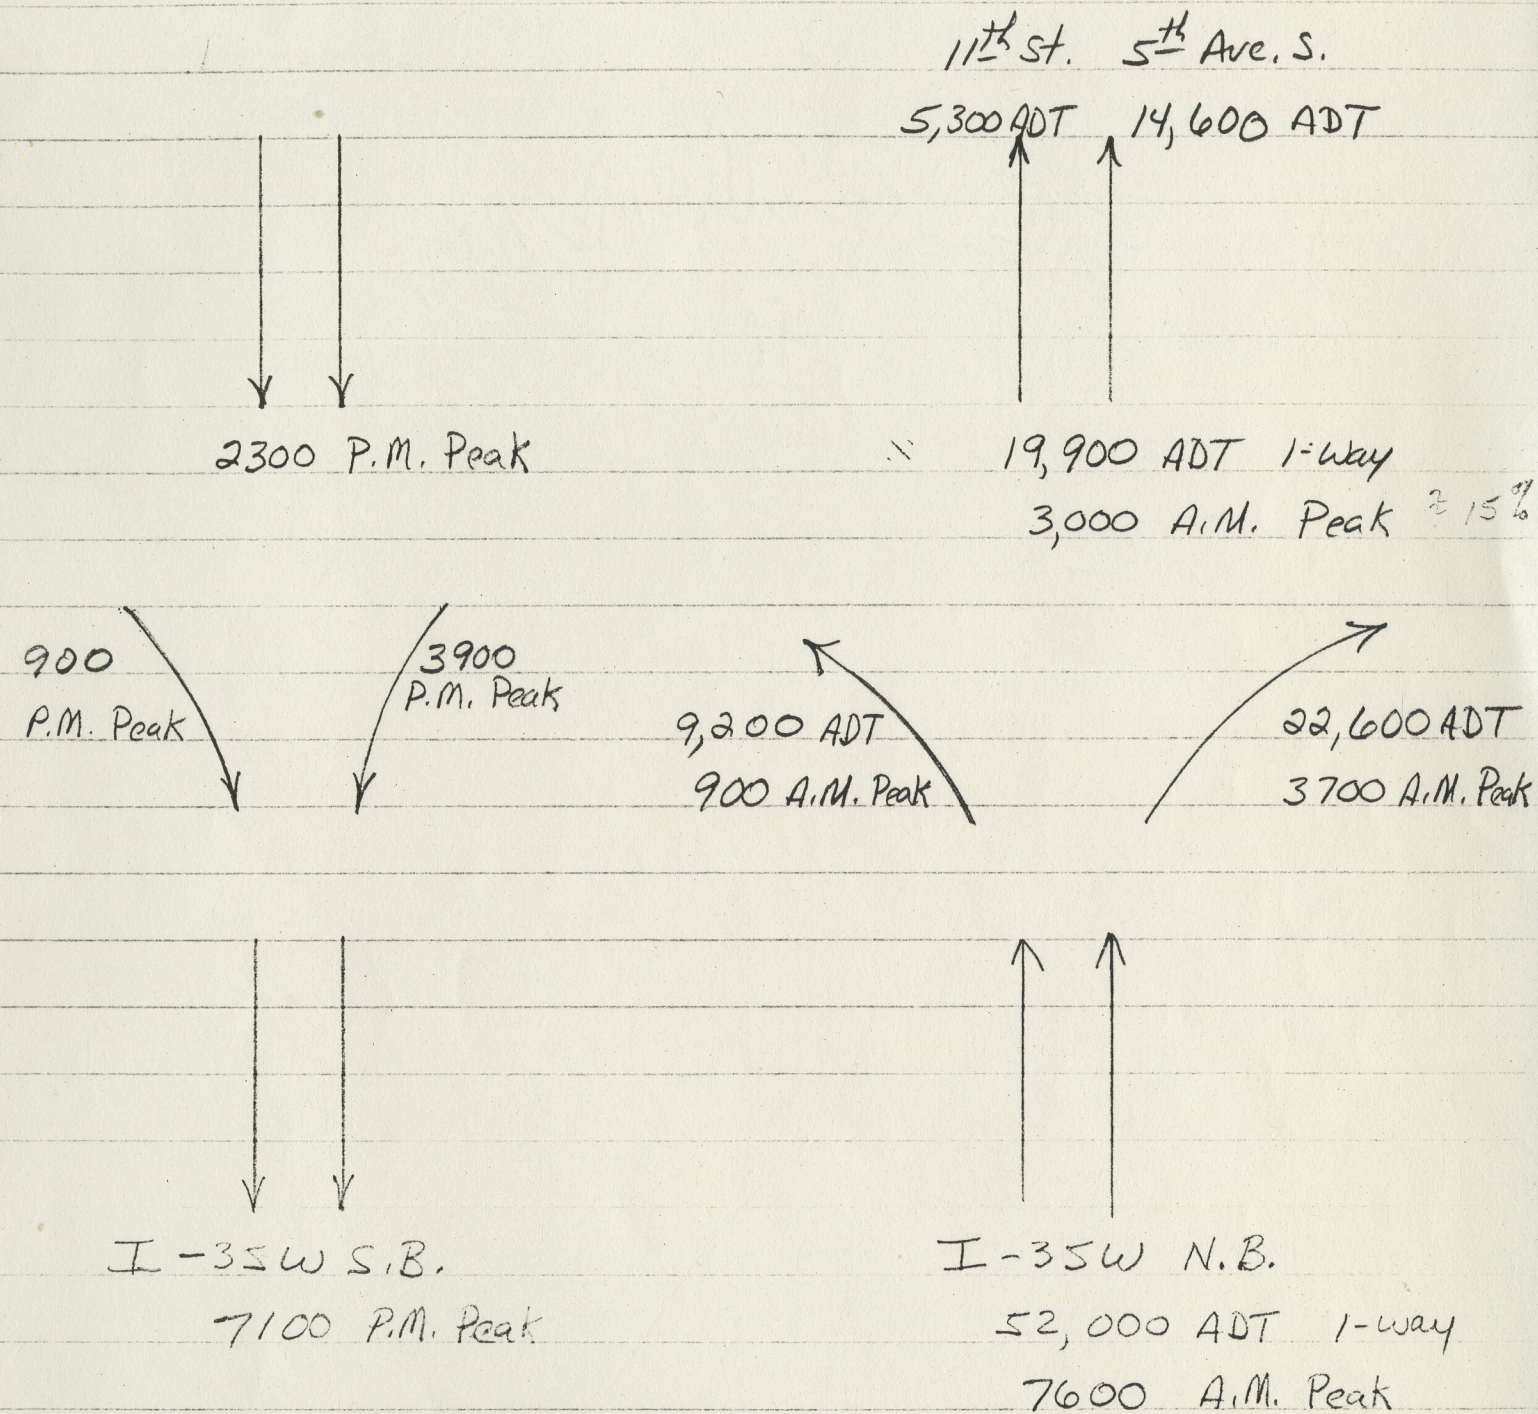 11th St. 5th Ave. S.
5,300 ADT 14,600 ADT
2300 P.M. Peak
19,900 ADT 1-Way
3,000 A.M. Peak ≈ 15%
900
P.M. Peak
3900
P.M. Peak
9,200 ADT
900 A.M. Peak
22,600 ADT
3700 A.M. Peak
I-35W S.B.
7100 P.M. Peak
I-35W N.B.
52,000 ADT 1-way
7600 A.M. Peak